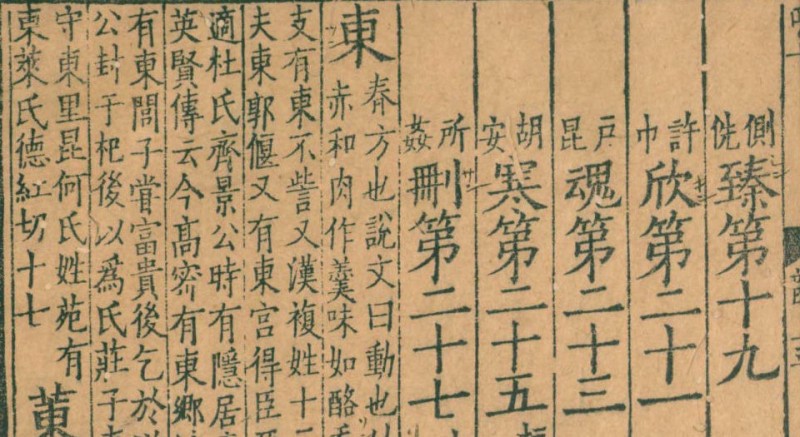 側侁臻第十九
許巾欣第二十一
戶昆魂第二十三
胡安寒第二十五
所姦刪第二十七
東春方也說文曰動也
赤和肉作羹味如酪
支有東不訾又漢複姓十
夫東郭偃又有東宮得臣
適杜氏齊景公時有隱居
英賢傳云今高密有東鄉
有東閭子嘗富貴後乞於
公封于杞後以爲氏莊子
守東里昆何氏姓苑有
東萊氏德紅切十七